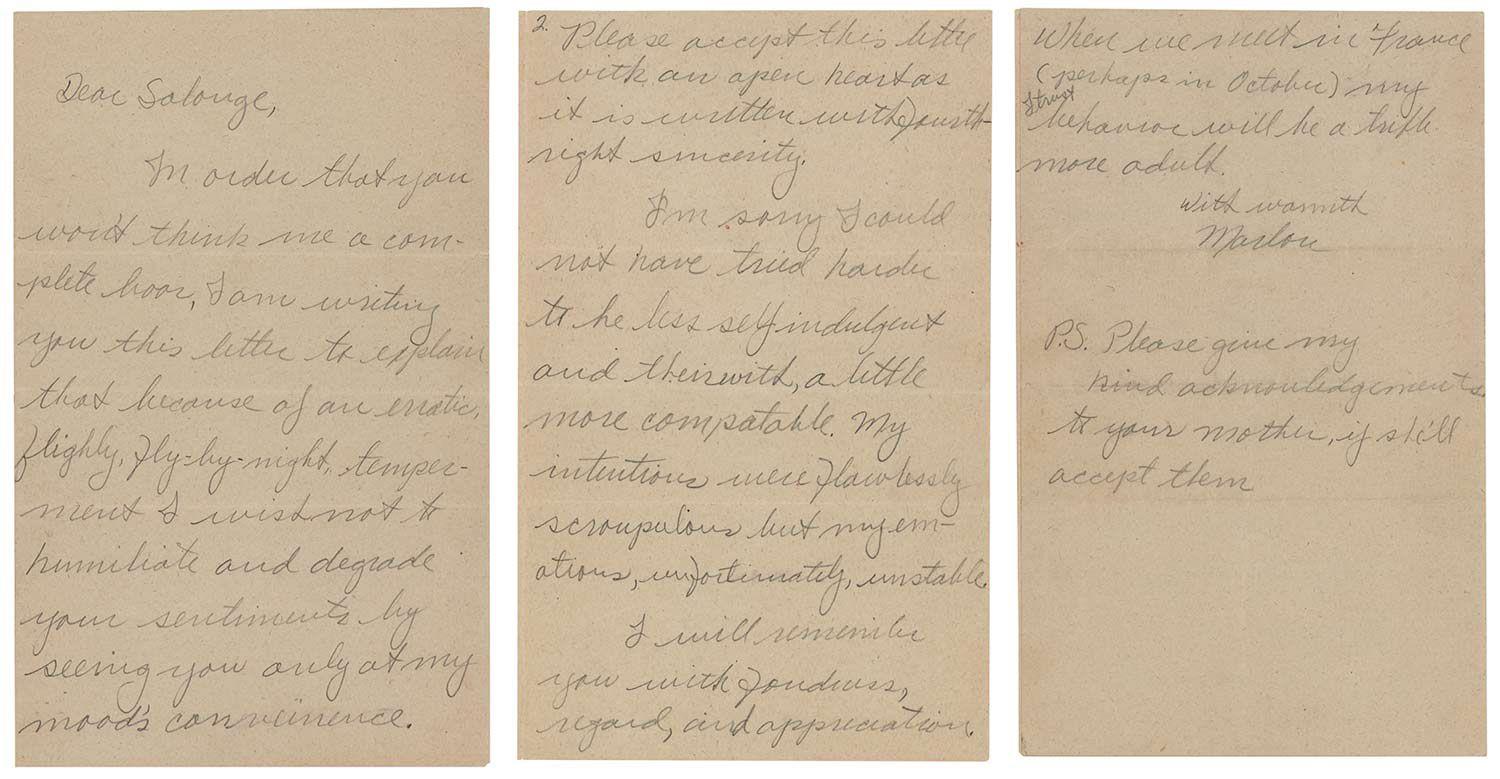 Dear Solonge,
In order that you
won't think me a com-
plete boor, I am writing
you this letter to explain
that because of an erratic,
flighly, fly-by-night, temper-
ment I wish not to
humiliate and degrade
your sentiments by
seeing you only at my
mood's conveinence.
2.
Please accept this letter
with an open heart as
it is written with forth-
right sincerity.
I'm sorry I could
not have tried harder
to be less self indulgent
and theirwith, a little
more compatable. My
intentions were flawlessly
scroupulous but my em-
otions, unfortunately, unstable.
I will remember
you with fondness,
regard, and appreciation.
When we meet in France
(perhaps in October) my
I trust
behavior will be a trifle
more adult.
With warmth
Marlon
P.S. Please give my
kind acknowledgements
to your mother, if she'll
accept them